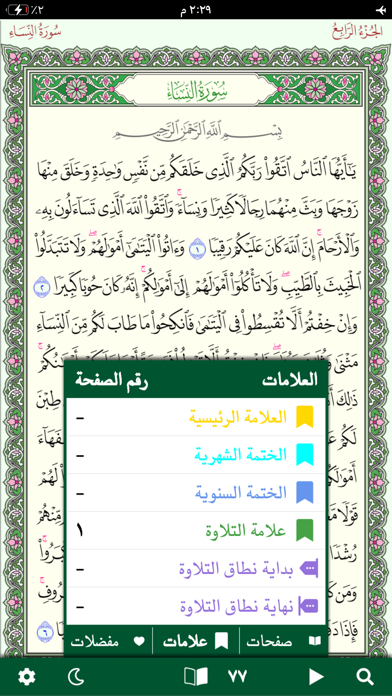 ٢:٢٩ م
٪٢
الجُزْءُ الرَّابِعُ
سُورَةُ النِّسَاءِ
سُورَةُ النِّسَاءِ
بِسْمِ اللَّهِ الرَّحْمَٰنِ الرَّحِيمِ
يَٰٓأَيُّهَا النَّاسُ اتَّقُوا۟ رَبَّكُمُ الَّذِى خَلَقَكُم مِّن نَّفْسٍ وَٰحِدَةٍ وَخَلَقَ مِنْهَا
زَوْجَهَا وَبَثَّ مِنْهُمَا رِجَالًا كَثِيرًا وَنِسَآءً ۚ وَاتَّقُوا۟ اللَّهَ الَّذِى تَسَآءَلُونَ بِهِۦ
وَالْأَرْحَامَ ۚ إِنَّ اللَّهَ كَانَ عَلَيْكُمْ رَقِيبًا ١ وَءَاتُوا۟ الْيَتَٰمَىٰٓ أَمْوَٰلَهُمْ ۖ وَلَا تَتَبَدَّلُوا۟
الْخَبِيثَ بِالطَّيِّبِ ۖ وَلَا تَأْكُلُوٓا۟ أَمْوَٰلَهُمْ إِلَىٰٓ أَمْوَٰلِكُمْ ۚ إِنَّهُۥ كَانَ حُوبًا كَبِيرًا ٢
وَإِنْ خِفْتُمْ أَلَّا تُقْسِطُوا۟ فِى الْيَتَٰمَىٰ فَانكِحُوا۟ مَا طَابَ لَكُم مِّنَ النِّسَآءِ
مَثْنَىٰ
ذَٰلِكَ
لَكُمْ
أَمْوَٰلَكُمُ
قَوْلًا
رُشْدًا
وَمَن
فَإِذَا
طِبْنَ
٦
العلامات
رقم الصفحة
العلامة الرئيسية -
الختمة الشهرية -
الختمة السنوية -
علامة التلاوة ١
بداية نطاق التلاوة -
نهاية نطاق التلاوة -
صفحات
علامات
مفضلات
٧٧